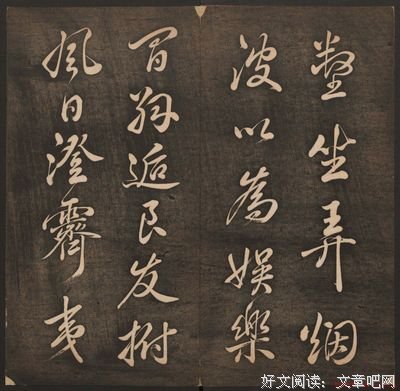 坐弄烟
波以為娛樂
間逅良友拊
風日澄霽夷
好文阅读：文章吧网